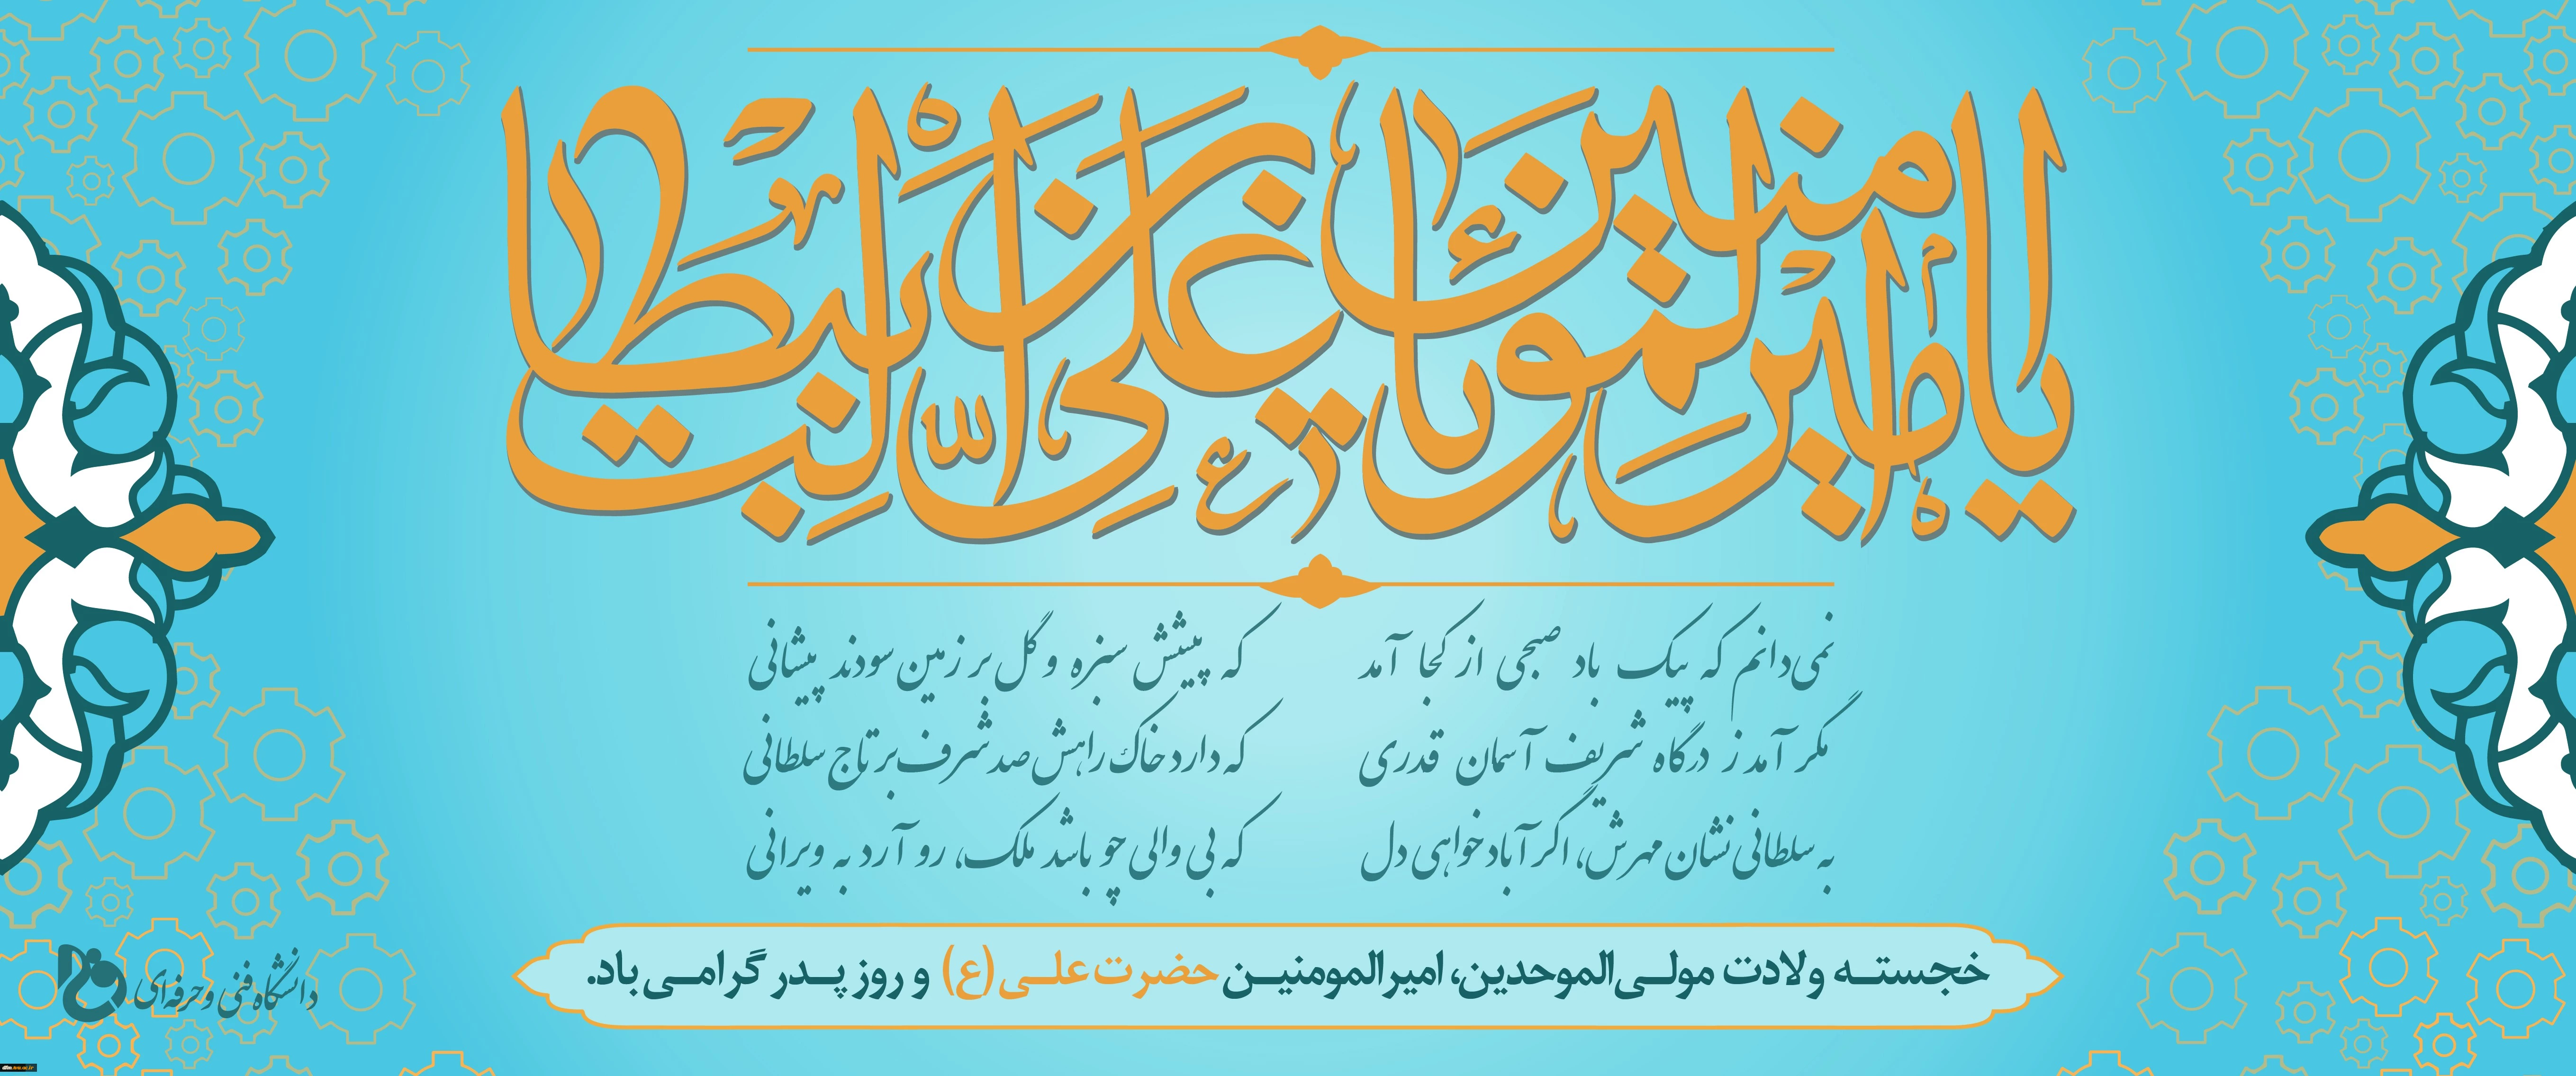 یا امیر المؤمنین یا علی بن ابیطالب
نمی‌دانم که پیک باد صبحی از کجا آمد که پیشش سبزه و گل بر زمین سودند پیشانی
مگر آمد ز درگاه شریف آسمان قدری که دارد خاک راهش صد شرف بر تاج سلطانی
به سلطانی نشان مهرش، اگر آباد خواهی دل که بی والی چو باشد ملک، رو آرد به ویرانی
خجسته ولادت مولی‌الموحدین، امیرالمومنین حضرت علی (ع) و روز پدر گرامی باد.
دانشگاه فنی و حرفه‌ای